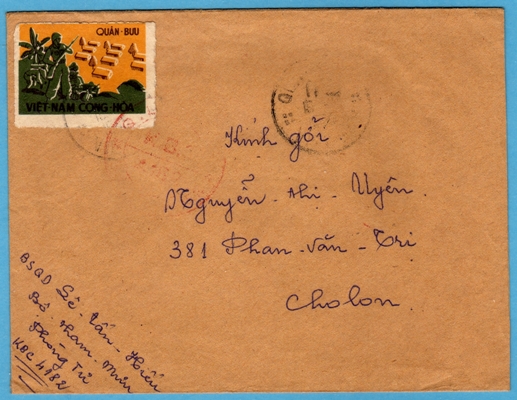 QUÂN-BƯU
VIỆT-NAM CỘNG-HÒA
Kính gởi
Nguyễn-thị-Uyên.
381 Phan-Văn-Trị
Cholon.
BSQD Lê-Văn-Hiếu
Bộ-tham-Mưu
Phòng Tư
KBC 4982